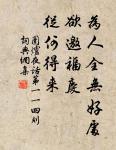 為人全無好處
欲邀福慶
從何得來
圍爐夜話第一一四則
詞典網集